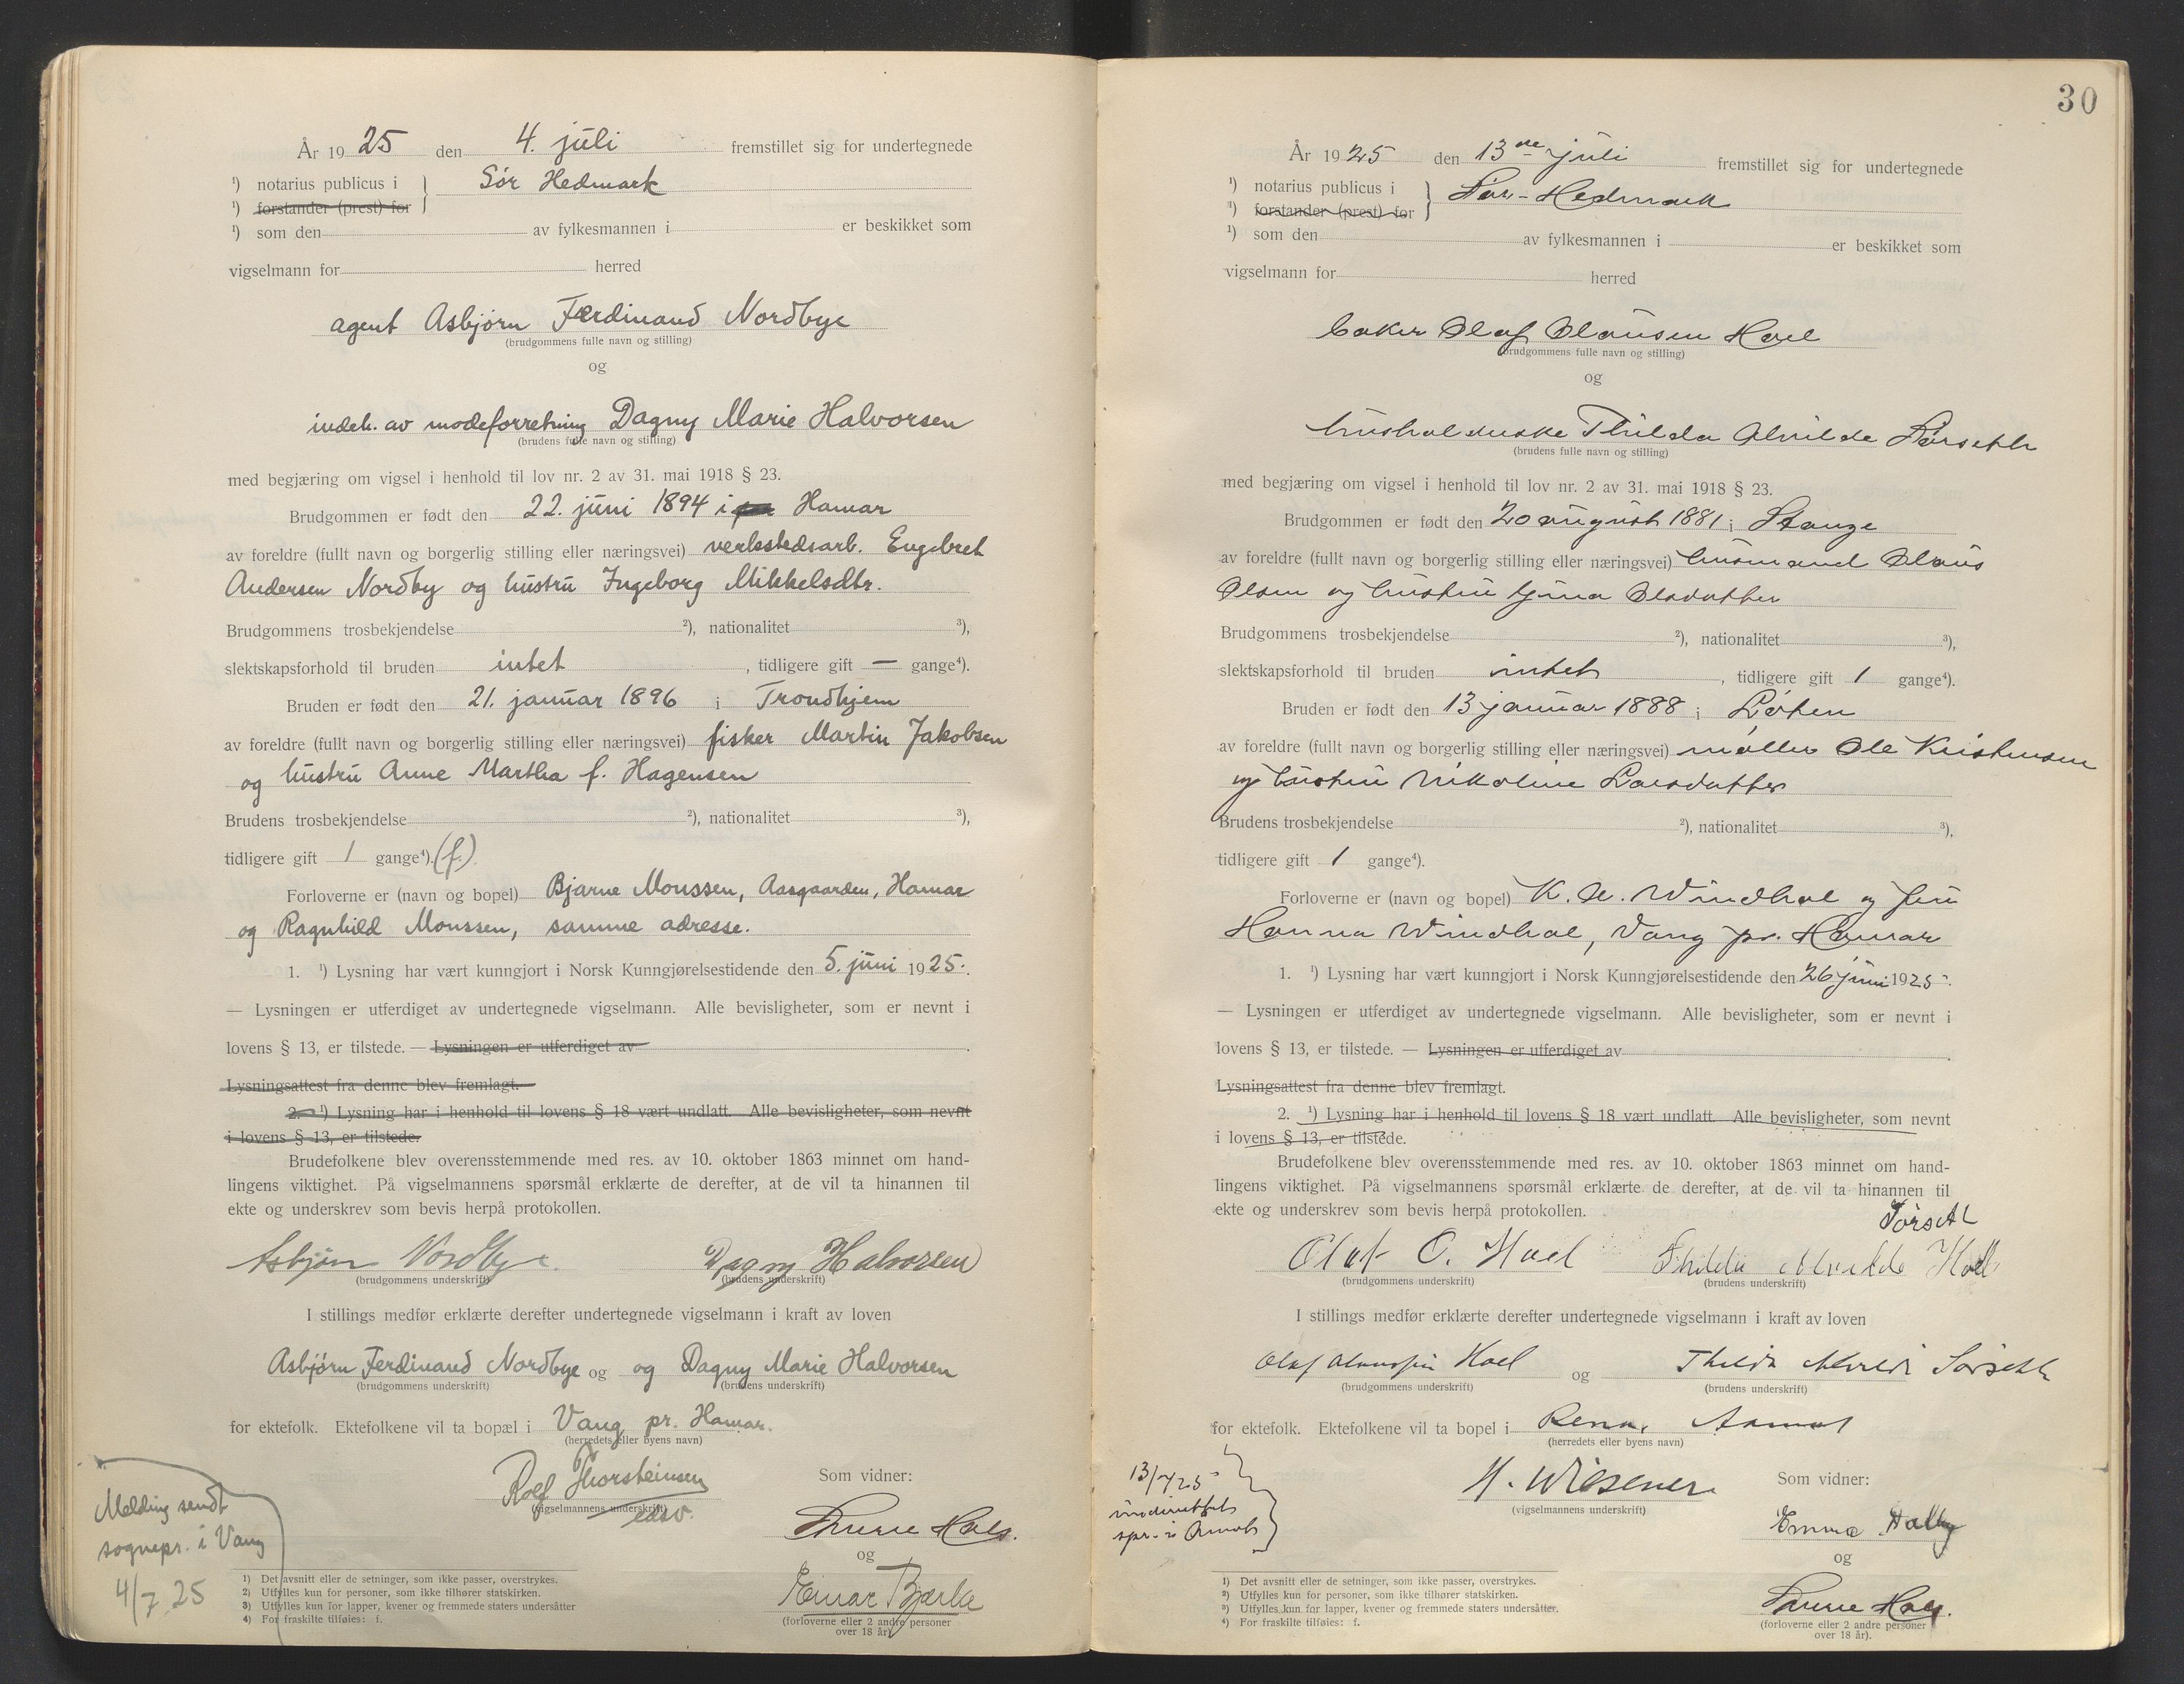 År 1925 den 4. juli fremstillet sig for undertegnede
¹) notarius publicus i } Sör Hedmark
¹) forstander (prest) for
¹) som den av fylkesmannen i er beskikket som
vigselmann for herred
agent Asbjörn Ferdinand Nordbye
(brudgommens fulle navn og stilling)
og
indeh. av modeforretning Dagny Marie Halvorsen
(brudens fulle navn og stilling)
med begjæring om vigsel i henhold til lov nr. 2 av 31. mai 1918 § 23.
Brudgommen er født den 22. juni 1894 i Hamar
av foreldre (fullt navn og borgerlig stilling eller næringsvei) verkstedsarb. Engebret
Andersen Nordby og hustru Ingeborg Mikkelsdtr.
Brudgommens trosbekjendelse ²), nationalitet ³),
slektskapsforhold til bruden intet, tidligere gift — gange⁴).
Bruden er født den 21. januar 1896 i Trondhjem
av foreldre (fullt navn og borgerlig stilling eller næringsvei) fisker Martin Jakobsen
og hustru Anne Martha f. Hagensen
Brudens trosbekjendelse ²), nationalitet ³),
tidligere gift 1 gange⁴). (f.)
Forloverne er (navn og bopel) Bjarne Monssen, Aasgaarden, Hamar
og Ragnhild Monssen, samme adresse.
1. ¹) Lysning har vært kunngjort i Norsk Kunngjørelsestidende den 5. juni 1925.
— Lysningen er utferdiget av undertegnede vigselmann. Alle bevisligheter, som er nevnt i
lovens § 13, er tilstede. — Lysningen er utferdiget av
Lysningsattest fra denne blev fremlagt.
2. ¹) Lysning har i henhold til lovens § 18 vært undlatt. Alle bevisligheter, som nevnt
i lovens § 13, er tilstede.
Brudefolkene blev overensstemmende med res. av 10. oktober 1863 minnet om hand-
lingens viktighet. På vigselmannens spørsmål erklærte de derefter, at de vil ta hinannen til
ekte og underskrev som bevis herpå protokollen.
Asbjörn Nordbye. Dagny Halvorsen
(brudgommens underskrift) (brudens underskrift)
I stillings medfør erklærte derefter undertegnede vigselmann i kraft av loven
Asbjörn Ferdinand Nordbye og og Dagny Marie Halvorsen
(brudgommens underskrift) (brudens underskrift)
for ektefolk. Ektefolkene vil ta bopæl i Vang pr. Hamar.
(herredets eller byens navn)
Rolf Thorsteinsen
(vigselmannens underskrift)
edsv.
Som vidner:
Hals.
og
Einar Bjerke
(forloverne eller 2 andre personer
over 18 år).
Melding sendt
sognepr. i Vang
4/7 25
1) Det avsnitt eller de setninger, som ikke passer, overstrykes.
2) Utfylles kun for personer, som ikke tilhører statskirken.
3) Utfylles kun for lapper, kvener og fremmede staters undersåtter
4) For fraskilte tilføies: f.
30
År 1925 den 13de juli fremstillet sig for undertegnede
¹) notarius publicus i } Sör-Hedmark
¹) forstander (prest) for
¹) som den av fylkesmannen i er beskikket som
vigselmann for herred
baker Olaf Olausen Hoel
(brudgommens fulle navn og stilling)
og
husholderske Thilda Alvilde Sörseth
(brudens fulle navn og stilling)
med begjæring om vigsel i henhold til lov nr. 2 av 31. mai 1918 § 23.
Brudgommen er født den 20 august 1881 i Stange
av foreldre (fullt navn og borgerlig stilling eller næringsvei) husmand Olaus
Olsen og hustru Olsdatter
Brudgommens trosbekjendelse ²), nationalitet ³),
slektskapsforhold til bruden intet, tidligere gift 1 gange⁴).
Bruden er født den 13 januar 1888 i Löten
av foreldre (fullt navn og borgerlig stilling eller næringsvei) möller Ole Kristensen
og hustru Nikoline Larsdatter
Brudens trosbekjendelse ²), nationalitet ³),
tidligere gift 1 gange⁴).
Forloverne er (navn og bopel) K. O. Windhol og fru
Hanna Windhol, Vang pr. Hamar
1. ¹) Lysning har vært kunngjort i Norsk Kunngjørelsestidende den 26 juni 1925.
— Lysningen er utferdiget av undertegnede vigselmann. Alle bevisligheter, som er nevnt i
lovens § 13, er tilstede. — Lysningen er utferdiget av
Lysningsattest fra denne blev fremlagt.
2. ¹) Lysning har i henhold til lovens § 18 vært undlatt. Alle bevisligheter, som nevnt
i lovens § 13, er tilstede.
Brudefolkene blev overensstemmende med res. av 10. oktober 1863 minnet om hand-
lingens viktighet. På vigselmannens spørsmål erklærte de derefter, at de vil ta hinannen til
ekte og underskrev som bevis herpå protokollen.
Sörseth
Olaf O. Hoel Thilda Alvilde Hoel
(brudgommens underskrift) (brudens underskrift)
I stillings medfør erklærte derefter undertegnede vigselmann i kraft av loven
Olaf Olaussen Hoel og Thilda Alvilde Sörseth
(brudgommens underskrift) (brudens underskrift)
for ektefolk. Ektefolkene vil ta bopel i Rena, Aamot
(herredets eller byens navn)
H. Wiesener
(vigselmannens underskrift)
Som vidner:
Emma Halby
og
Hals.
(forloverne eller 2 andre personer
over 18 år).
13/7 25
underrettet
spr. i Åmot
1) Det avsnitt eller de setninger, som ikke passer, overstrykes.
2) Utfylles kun for personer, som ikke tilhører statskirken.
3) Utfylles kun for lapper, kvener og fremmede staters undersåtter.
4) For fraskilte tilføies: f.